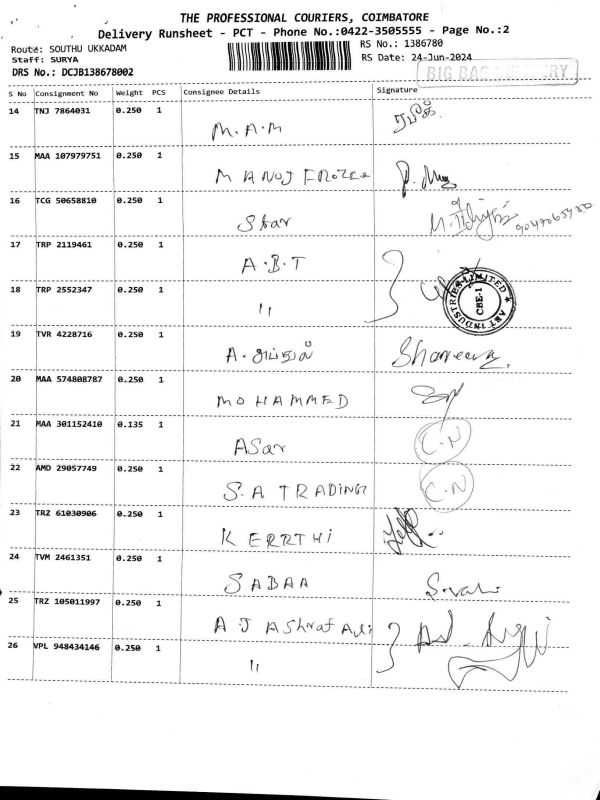 THE PROFESSIONAL COURIERS, COIMBATORE
Delivery Runsheet - PCT - Phone No.:0422-3505555 - Page No.:2
Route: SOUTHU UKKADAM RS No.: 1386780
Staff: SURYA RS Date: 24-Jun-2024
DRS No.: DCJB138678002
S No Consignment No Weight PCS Consignee Details Signature
14 TNJ 7864031 0.250 1 M.A.M
15 MAA 107979751 0.250 1 MANOJ FROZEE
16 TCG 50658810 0.250 1 Star
17 TRP 2119461 0.250 1 A.B.T
18 TRP 2552347 0.250 1 "
19 TVR 4228716 0.250 1 A.
20 MAA 574808787 0.250 1 MOHAMMED
21 MAA 301152410 0.135 1 ASar C.N
22 AMD 29057749 0.250 1 S.A TRADING C.N
23 TRZ 61030906 0.250 1 KERRTHI
24 TVM 2461351 0.250 1 SABAA
25 TRZ 105011997 0.250 1 A J AShraf Ali
26 VPL 948434146 0.250 1 "